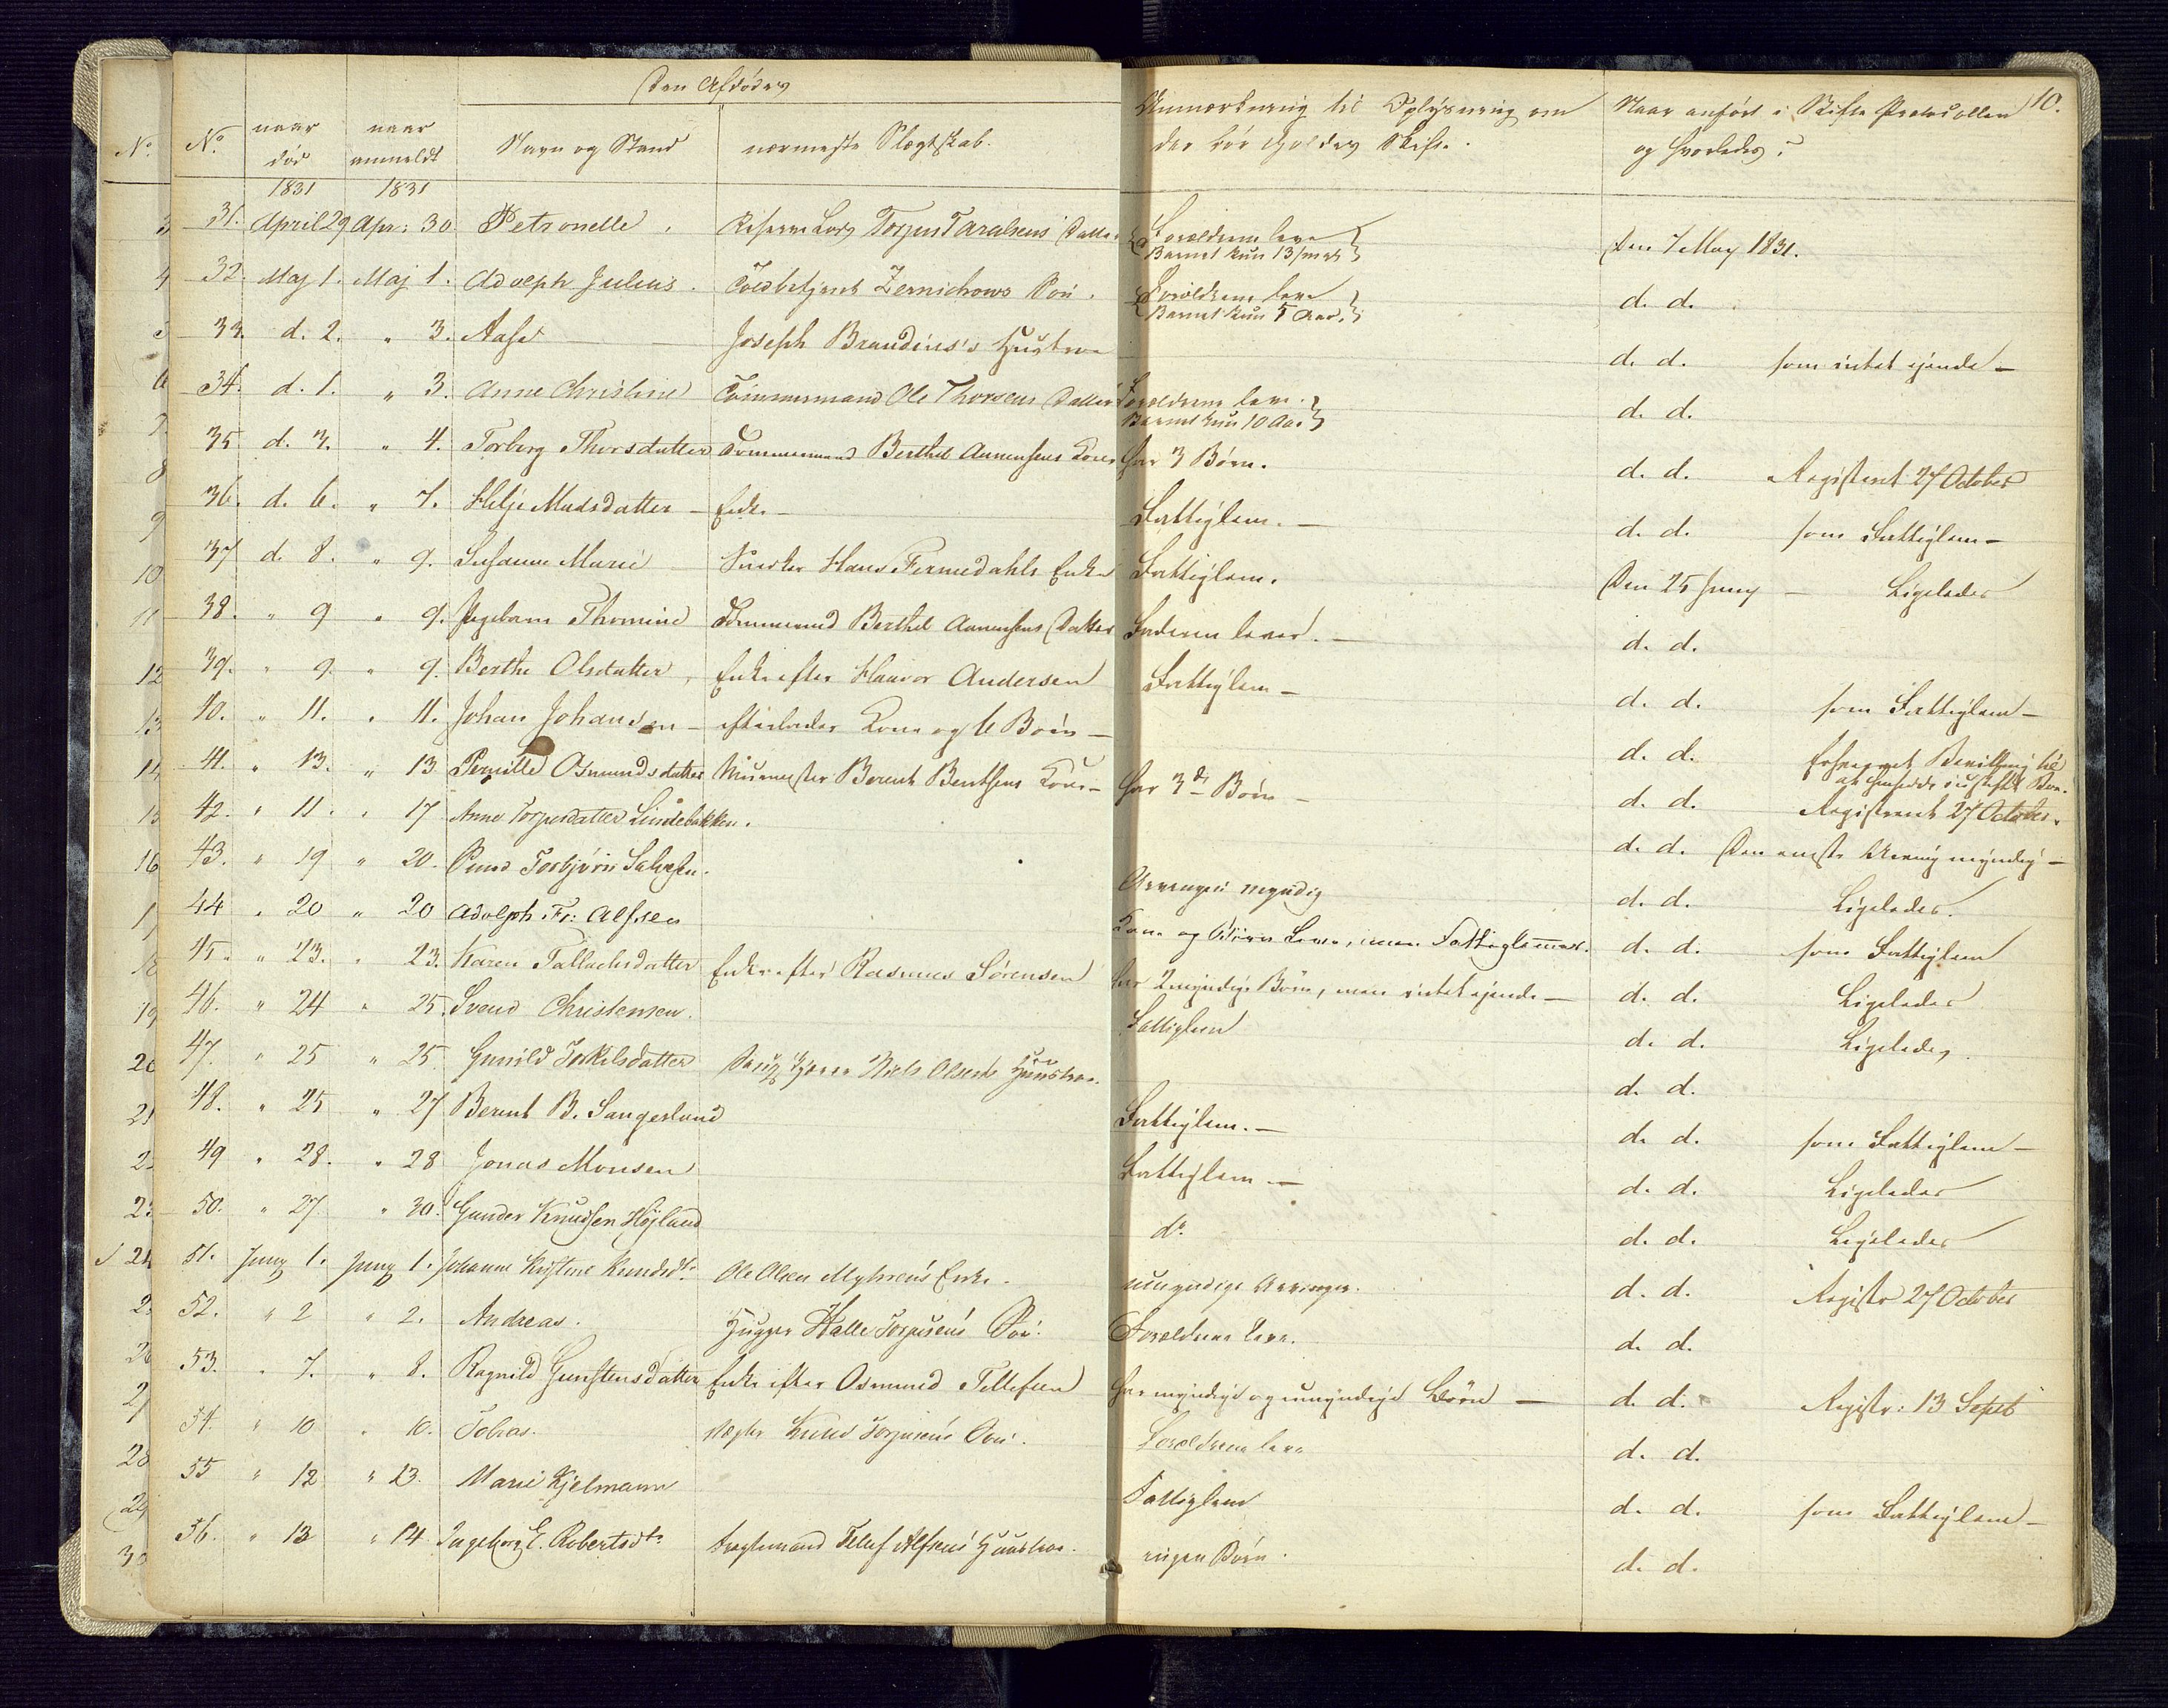 Den Afdødes
Anmærkning til Oplysning om
der bør holdes Skifte.
Naar anført i Skifte Protocollen
og hvorledes?
10.
No.
No. naar død naar anmeldt Navn og Stand nærmeste Slægtskab.
1831 1831
31. April 29 Apr: 30 Petronelle. Torjus Taralsens Datter Forældrene leve Den 7 May 1831.
Barnet kun 13
32. Maj 1. Maj 1. Adolph Julius. Toldbetjent Zernichows Søn. Forældrene leve d. d.
Barnet kun 5 Aar.
33. d. 2. " 3. Aase Joseph Brandius's Hustroe d. d. som intet ejende –
34. d. 1. " 3. Anne Christine Tömmermand Ole Thorsens Datter Forældrene leve. d. d.
Barnet kun 10 Aar
35 d. 3. " 4. Torberg Thorsdatter Tömmermand Berthel Aanensens Kone har 3 Børn. d. d. Registreret 27 October
36. d. 6. " 7. Helje Madsdatter – Enke – Fattiglem. – d. d. som Fattiglem –
37 d. 8. " 9. Susanne Marie Snedker Hans Firmedahls Enke Fattiglem. Den 25 Juny – Ligeledes
38. " 9 " 9. Ingebore Thomine Tömmermd Berthel Aanensens Datter Faderen lever. – d. d.
39. " 9. " 9. Berthe Olsdatter, Enke efter Haavor Andersen Fattiglem – d. d. som Fattiglem –
40. " 11. " 11. Johan Johansen – efterlader Kone og 6 Børn – d. d. Bevilling til
41. " 13. " 13. Pernille Osmundsdatter Muurmester Berent Bentsens Kone – har 3de Børn – d. d. Registreret 27 October.
42. " 11. " 17 Anne Torjusdatter Lindebakken. d. d. Den eneste Arving myndig –
43. " 19 " 20. Torbjørn Salvesen. Arvingen myndig d. d. Ligeledes.
44 " 20 " 20 Adolph Fr: Alfsen Kone og Börn leve, men Fattiglemmer. d. d. som Fattiglem
45. " 23. " 23. Karen Tallachsdatter Enke efter Rasmus Sörensen har 2 myndige Børn, men intet ejende – d. d. Ligeledes
46. " 24 " 25. Svend Christensen. Fattiglem d. d. Ligeledes.
47. " 25 " 25. Gunild Torkelsdatter Niels Olsens Huustroe. d. d.
48. " 25 " 27 Berent B. Sangesland Fattiglem. – d. d. som Fattiglem –
49 " 28. " 28 Jonas Monsen Fattiglem – d. d. Ligeledes
50. " 27 " 30. Gunder Knudsen Høyland do. d. d. Ligeledes
51. Juny 1. Juny 1. Johanne Kristine Knudsdtr. Ole Olsen Myhren's Enke. umyndige Arvinger. d. d. Registr 27 October
52. " 2 " 2. Andreas. Hugger Halle Torjusens Søn. Forældrene leve. d. d.
53. " 7. " 8. Ragnild Gunstensdatter Enke efter Osmund Tellefsen har myndige og umyndige Börn – d. d. Registr: 13 Septb
54. " 10 " 10. Tobias. Knud Torjusens Søn. Forældrene leve d. d.
55 " 12 " 13. Marie Kjelmann Fattiglem d. d. som Fattiglem –
56. " 13 " 14 Ingeborg E. Robertsdtr. Fragtemand Tellef Alfsens Huustroe. ingen Børn. d. d.